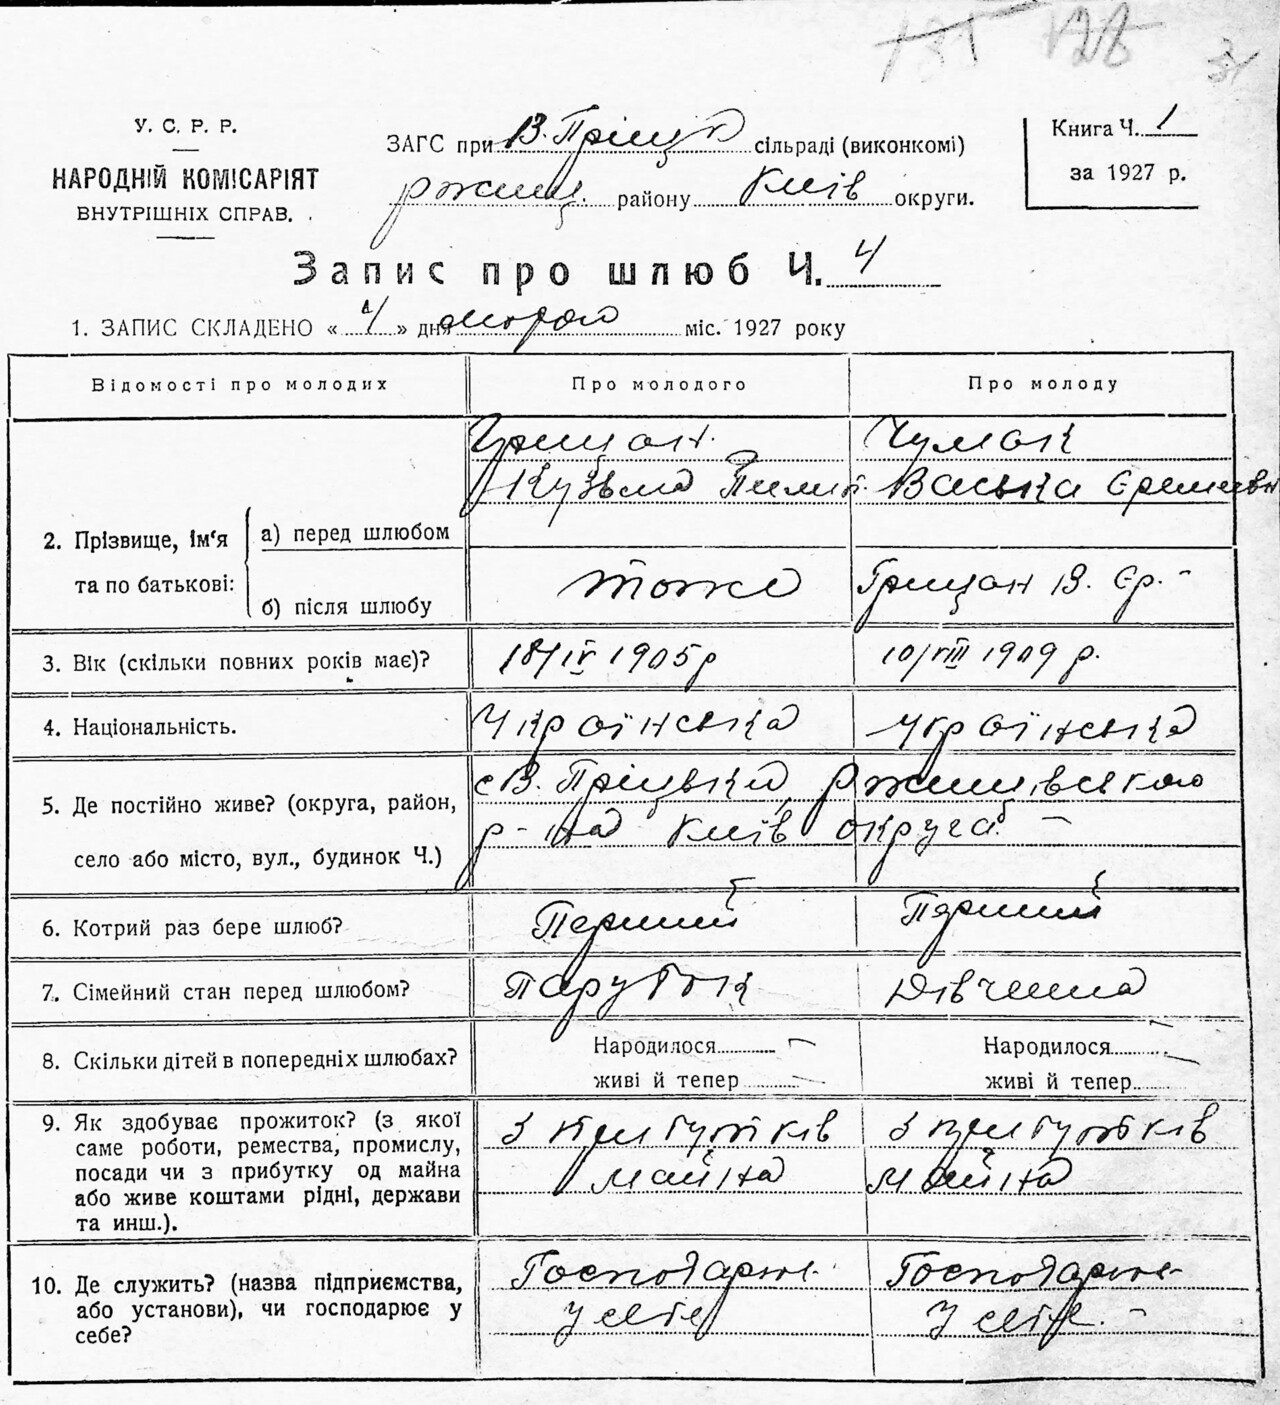 128
31
У. С. Р. Р.
НАРОДНІЙ КОМІСАРІЯТ
ВНУТРІШНІХ СПРАВ.
ЗАГС при В. Пріцк сільраді (виконкомі)
ржищ. району Київ округи.
Книга Ч. 1
за 1927 р.
Запис про шлюб Ч. 4
1. ЗАПИС СКЛАДЕНО « 4 » дня міс. 1927 року
Відомості про молодих
Про молодого
Про молоду
2. Прізвище, ім'я та по батькові:
а) перед шлюбом
Грицан.
Кузьма Пилип.
Чумак
Васька Єремієвн
б) після шлюбу
тоже
Грицан В. Єр. -
3. Вік (скільки повних років має)?
18/IV 1905 р
10/VIII 1909 р.
4. Національність.
Українська
Українська
5. Де постійно живе? (округа, район,
село або місто, вул., будинок Ч.)
с В. Пріцька, ржищівського
р-на Київ округа. -
6. Котрий раз бере шлюб?
Перший
Перший
7. Сімейний стан перед шлюбом?
Парубок
Дівчина
8. Скільки дітей в попередніх шлюбах?
Народилося -
живі й тепер -
Народилося -
живі й тепер -
9. Як здобуває прожиток? (з якої
саме роботи, ремества, промислу,
посади чи з прибутку од майна
або живе коштами рідні, держави
та инш.).
З прибутків
майна
З прибутків
майна
10. Де служить? (назва підприємства,
або установи), чи господарює у
себе?
Господарює
у себе
Господарює
у себе. -